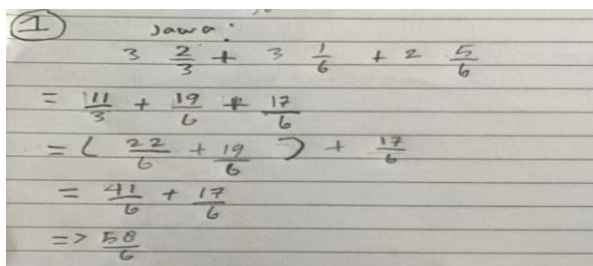 1 Jawa:
3 2/3 + 3 1/6 + 2 5/6
= 11/3 + 19/6 + 17/6
= ( 22/6 + 19/6 ) + 17/6
= 41/6 + 17/6
=> 58/6